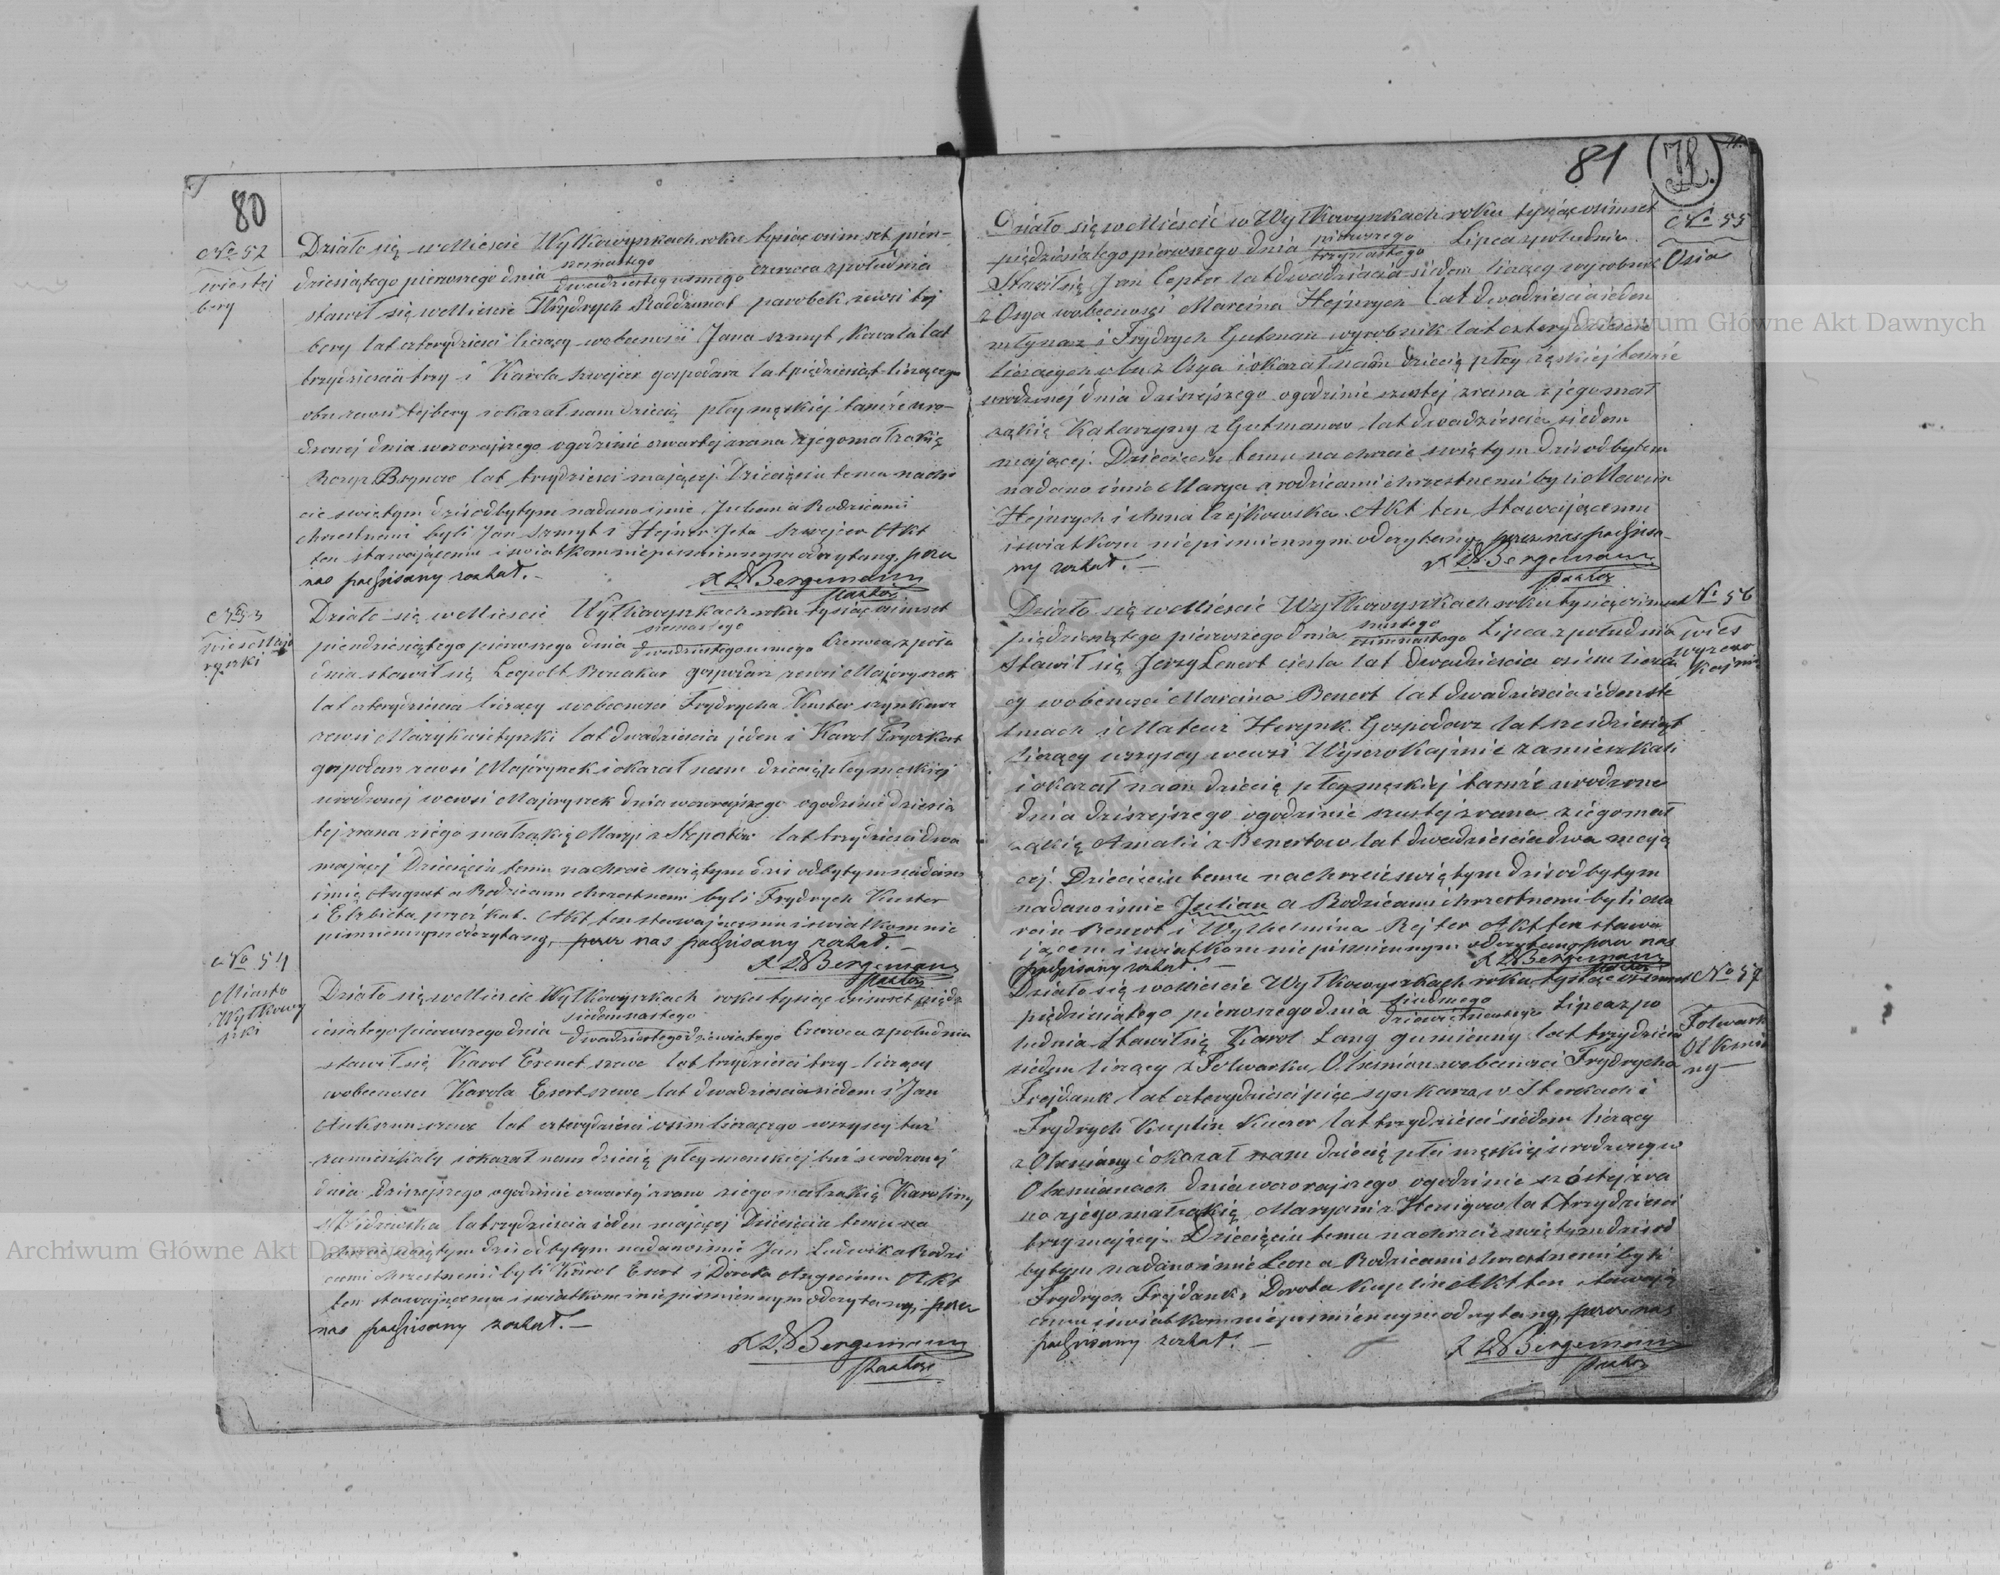 80
No 52
wieś tej
bery
Działo się w Mieście Wyłkowyszkach roku tysiąc ośmset pień-
dziesiątego pierwszego dnia szesnastego / dwudziestego usmego czerwca z południa
stawił się w Mieście Frydrych Raddzunat parobek zewsi tej
bery lat czterydzieści liczący w obecności Jana Szmyt Kawala lat
trzydzieści trzy i Karola Szwejcer gospodarz lat piędziesiąt liczącego
obu zewsi tejbery i okazał nam dziecię płcy męskiej tamże uro-
dzonej dnia wczorajszego o godzinie czwartej zrana z jego małżąkię
lat trzydzieści mającej Dziecięciu temu na chrz
cie świętym dziś odbytym nadano imie Julian a Rodzicami
chrzestnemi byli Jan Szmyt i Szwejcer Akt
ten stawającemu i światkom niepismiennym odczytany, przez
nas podpisany został. —
X D. Bergemann
Pastor
No 53
wieś Majo
ryszki
Działo się w Mieście Wyłkowyszkach roku tysiąc ośmset
piendziesiątego pierwszego dnia szesnastego / dwudziestego usmego Czerwca z połu
dnia stawił się Leopolt gospodarz zewsi Majoryszek
lat czterydzieścia liczący w obecności Frydrycha Kuster szynkarz
zewsi lat dwadzieścia jeden i Karol
gospodarz zewsi Majoryszek i okazał nam dziecię płcy męskiej
urodzonej wewsi Majoryszek dnia wczorajszego o godzinie dziesią
tej zrana z jego małżąkię Maryi z lat trzydzieści dwa
mającej Dziecięciu temu na chrzcie świętym dziś odbytym nadano
imię August a Rodzicami chrzestnemi byli Frydrych Kuster
i Elżbieta Akt ten stawającemu i światkom nie
pismiennym odczytany, przez nas podpisany został. —
X D. Bergemann
Pastor
No 54
Miasto
Wyłkowy
szki
Działo się w Mieście Wyłkowyszkach roku tysiąc ośmset piędz
iesiątego pierwszego dnia siedemnastego / dwudziestego dziewiątego Czerwca z południa
stawił się Karol szewc lat trzydzieści trzy liczący
w obecności Karola Ewert szewc lat dwadzieścia siedem i Jan
szewc lat czterydzieści ośm liczącego wszyscy tuż
zamieszkały i okazał nam dziecię płcy męskiej tuż urodzonej
dnia dziszejszego o godzinie czwartej zrana z jego małżąkię Karoliny
lat trzydzieścia jeden mającej Dziecięciu temu na
chrzcie świętym dziś odbytym nadano imie Jan Ludwik a Rodzi
cami chrzestnemi byli Karol Ewert i Dorota Akt
ten stawającemu i światkom niepismiennym odczytany, przez
nas podpisany został. —
X D. Bergemann
Pastor
81
No 55
Osia
Działo się w Mieście w Wyłkowyszkach roku tysiąc ośmset
piędziesiątego pierwszego dnia pierwszego / trzynastego Lipca z południa
Stawił się Jan Cepter lat dwadzieścia siedem liczący wyrobnik
z Osya w obecności Marcina Hejnrych lat dwadzieścia siedem
młynarz i Frydrych Gutman wyrobnik lat czterydzieście
liczących obu z Osya i okazał nam dziecię płcy żęskiej tamże
urodzonej dnia dzisiejszego o godzinie szustej zrana z jego mał
żąkię Katarzyny z Gutmanow lat dwadzieścia siedem
mającej. Dziecięciu temu na chrzcie świętym dziś odbytem
nadano imie Marya a rodzicami chrzestnemi byli Marcin
Hejnrych i Anna Czejkowska. Akt ten stawającemu
i światkom niepismiennym odczytany przez nas podpisa-
ny został. —
X D. Bergemann
Pastor
No 56
Wieś
Wyszoko
Kajnie
Działo się w Mieście Wyłkowyszkach roku tysiąc ośmset
piędziesiątego pierwszego dnia szustego / osimnastego Lipca z południa
Stawił się Jerzy Lenert cieśla lat dwadzieścia osiem licza
cy w obecności Marcina Benert lat dwadzieścia siedem ste
lmach i Mateusz Gospodarz lat sześdziesiąt
liczący wszyscy wewsi zamieszkali
i okazał nam dziecię płcy męskiej tamże urodzone
dnia dziszejszego o godzinie szustej zrana z jego mał
żąkię Amalii z Benertow lat dwadzieścia dwa mają
cej. Dziecięciu temu na chrzcie świętym dziś odbytym
nadano imie Julian a Rodzicami chrzestnemi byli Ma
rcin Benert i Wylhelmina Rejter Akt ten stawa
jącem i światkom niepismiennym odczytany przez nas
podpisany został. —
X D. Bergemann
Pastor
No 57
Folwark
Olksnia
ny
Działo się w Mieście Wyłkowyszkach roku tysiąc ośmset
piędziesiątego pierwszego dnia siudmego / dziewiętnastego Lipca z po
łudnia stawił się Karol Lang gumienny lat trzydzieści
siedem liczący z Folwarku w obecności Frydrycha
Frejdank lat czterydzieści pięć szynkarz w i
Frydrych Kuplin Kuczer lat trzydzieści siedem liczący
z i okazał nam dziecię płci męskiej urodzony w
dnia wczorajszego o godzinie szóstej zra
na z jego małżąkię Maryani z Henigow lat trzydzieści
trzy mającej. Dziecięciu temu na chrzcie świętym dziś od
bytym nadano imie Leon a Rodzicami chrzestnemi byli
Frydrych Frejdank i Dorota Kuplin Akt ten stawają
cemu i światkom niepismiennym odczytany, przez nas
podpisany został. —
X D. Bergemann
Pastor
Archiwum Główne Akt Dawnych
Archiwum Główne Akt Dawnych